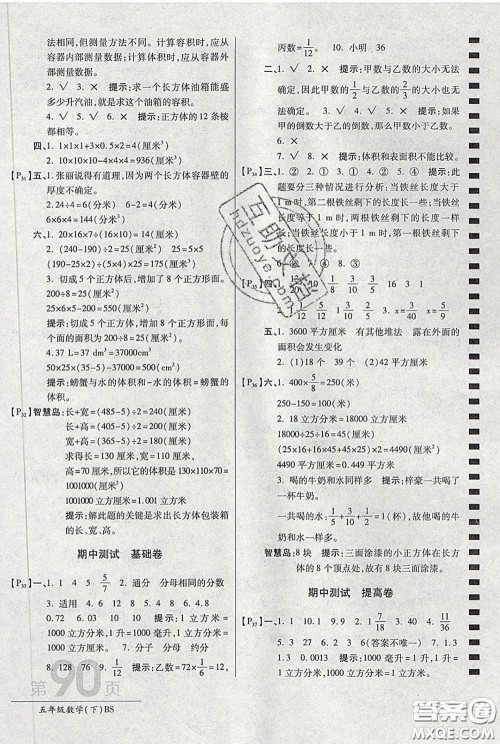 法相同,但测量方法不同。计算容积时,应从
容器内部测量数据。计算体积时,应从容器外
部测量数据。
2. √ 3. × 提示:求一个长方体油箱能盛
多少升汽油,就是求这个油箱的容积。
4. × 5. × 提示:正方体的 12 条棱
都相等。
四、1. 1×1×1+3×0.5×2=4(厘米³)
2. 10×10×10-4×4×10=840(厘米³)
【P31】五、1. 张丽说得有道理,因为两个长方体容器壁的
厚度不确定。
2. (24-0)÷12=2(分米) 6-2=4(分米)
6×6×4=144(分米³)
六、1. 20×16×7÷(16×10)=14(厘米)
2. (240-190)÷2=25(厘米)
(290-240)÷2=25(厘米) 25×25×25=15625(厘米³)
3. 切成 5 个正方体,增加了 8 个正方形面。
200÷8=25(厘米²)
25×(5×5-3)=550(厘米²)
提示:切成 5 个正方体,增加了 8 个正方形面,每
个面的面积为 200÷8=25(厘米²)
4. 37 L=37000 mL=37000(cm³)
50×25×(35-5)-37000=500(cm³)
提示:螃蟹与水的体积和-水的体积=螃蟹的
体积。
【P32】智慧岛:长+宽=(485-5)÷2=240(厘米)
长+高=(405-5)÷2=200(厘米)
宽+高=(365-5)÷2=180(厘米)
求得长=130 厘米,宽=110 厘米,
高=70 厘米,所以它的体积是 130×110×70=
1001000(厘米³)
1001000 厘米³=1.001 立方米
提示:解此题的关键是求出长方体包装箱
的长、宽、高。
期中测试 基础卷
【P33】一、1. 1 4 5 5/7 2. 通分 分母相同的分数
3. 适用 4. 8 16 5. 3.08 3 80
0.72 6. 0.03 10 提示:1 立方米=
1000 立方分米,1 升=1000 毫升=1 立方分米=
1000 立方厘米。 7. 分子 分母 约分
8. 128 76 9. 1/12 提示:乙数=72×1/12=6,
五年级数学(下)BS
第90页
丙数=
10. 小明 36
二、1. √ 2. √ 3. × 提示:甲数与乙数的大小无法
确定,因此甲数的1/2与乙数的2/3的大小也无法
确定。 4. × 提示:甲数小于乙数。
5. √ 6. × 提示:体积和表面积不能比较。
【P34】三、1. ② 2. ① 3. ③ 4. ① 5. ④ 提示:此
题要分三种情况进行分析:当铁丝长度大于
1 m 时,第一根铁丝剩下的长度长一些;当铁丝
长度等于 1 m 时,两根铁丝剩下的长度一样
长;当铁丝长度小于 1 m 时,第二根铁丝剩下
的长度长一些。
6. ② 7. ④ 8. ③
【P35】四、
五、1. 3600 平方厘米 有其他堆法 露在外面的
面积会发生变化
2. (1)18 个 39 个 (2)42 平方厘米
【P36】六、1. 400×5/8=250(厘米)
250-150=100(厘米)
2. 18 立方分米=18000 立方厘米
18000÷25÷16=45(厘米)
(25×16+16×45+25×45)×2=4490(厘米²)
4490 平方厘米=44.9 平方分米
3. 喝的牛奶和水同样多 提示:梓豪一共喝了
一杯牛奶。
一共喝的水:1/6+1/3+1/2=1(杯),故牛奶和水
喝得一样多。
智慧岛:8 块 提示:三面涂漆的小正方体在长方
体的 8 个顶点处,故有 8 块三面涂漆。
期中测试 提高卷
【P37】一、1. 10.1 9.9 2. 3.7 3. 40 7/8 4. 11/36
5. 3 27 6. 3 6 (答案不唯一) 7. 1.3
1300 8. 1 3 9. > < < =